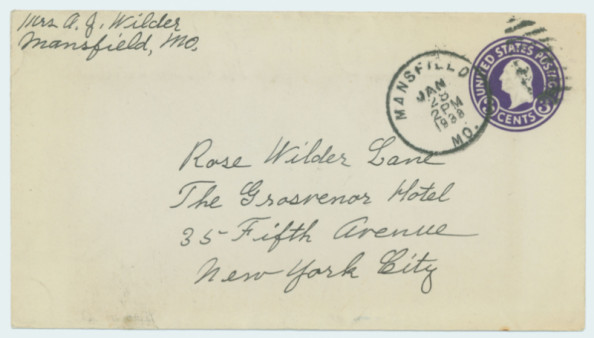 Mrs A. J. Wilder
Mansfield, Mo.
MANSFIELD
JAN
25
2 PM
1938
MO.
UNITED STATES POSTAGE
3 CENTS 3
Rose Wilder Lane
The Grosvenor Hotel
35 Fifth Avenue
New York City